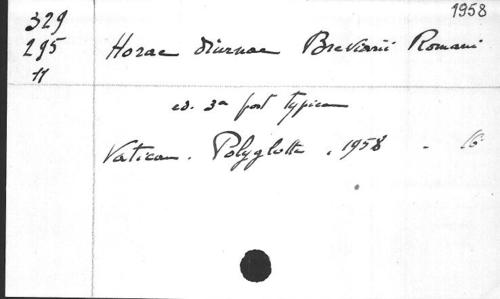 1958
329
295
11
Horae diurnae Breviarii Romani
ed. 3a post typicam
Vatican. Polyglotta, 1958 - 16